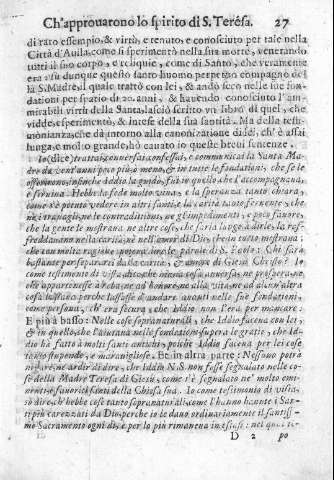 Ch'approuarono lo spirito di S. Teresa. 27
di raro essempio, & virtù, e tenuto, e conosciuto per tale nella
Città d'Auila, come si sperimentò nella sua morte, venerando
tutti il suo corpo, e reliquie, come di Santo, che veramente
era: fu dunque questo santo huomo perpetuo compagno del
la S. Madre, il quale trattò con lei, & andò seco nelle sue fon
dationi per spatio di 20. anni, & hauendo conosciuto l'am
mirabili virtù della Santa, lasciò scritto vn libro di quel, che
vidde, esperimentò, & intese della sua santità. Ma della testi
monianza, che dà intorno alla canonizatione di lei, ch'è assai
lunga, e molto grande, hò cauato io queste breui sentenze.
Io (dice) trattai, conuersai, confessai, e communicai la Santa Ma
dre da vent'anni poco più ò meno, & in tutte le fondationi, che fece
come s'è potuto vedere in altri santi, e la carità tanto feruente, che
nè i trauagli, nè le contraditioni, nè gl'impedimenti, e poca sanità,
che la gente le mostraua nè altre cose, che saria lungo à dire, la raf
freddauano nella carità, nè nell'amor di Dio, che in tutto mostraua:
che con molta ragione poteua dire le parole di S. Paolo: Chi sarà
bastante per separarci dalla carità, & amore di Giesù Christo? Io
come testimonio di vista dico, che niuna cosa auuersa, nè prospera, nè
che appartenesse à robba, nè ad honore, nè alla vita, nè ad alcun'altra
cosa lasciaua perche lasciasse d'andare auanti nelle sue fondationi,
come persona, ch'era sicura, che Iddio non l'era per mancare.
E più à basso: Nelle cose sopranaturali, che Iddio faceua con lei,
& in quello, che l'aiutaua nelle fondationi supera le gratie, che Id-
dio hà fatto à molti santi antichi, poiche Iddio faceua per lei cose
tanto stupende, e marauigliose. Et in altra parte: Nessuno potrà
negare, nè ardir di dire, che Iddio N. S. non fosse segnalato nelle co-
se della Madre Teresa di Giesù, come s'è segnalato ne' molto emi
nenti, e fauoriti santi della Chiesa sua. Io come testimonio di vista,
ti più carezzati da Dio, perche io le dauo ordinariamente il santiss-
mo Sacramento ogni dì, e per lo più rimaneua in estasi: nel qual te
D 2 po